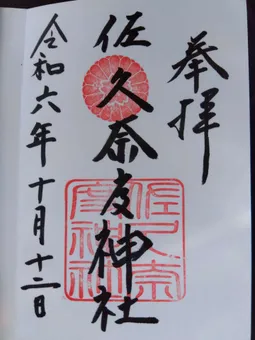 奉拝
佐久奈度神社
令和六年十月十二日
佐久奈
度神社